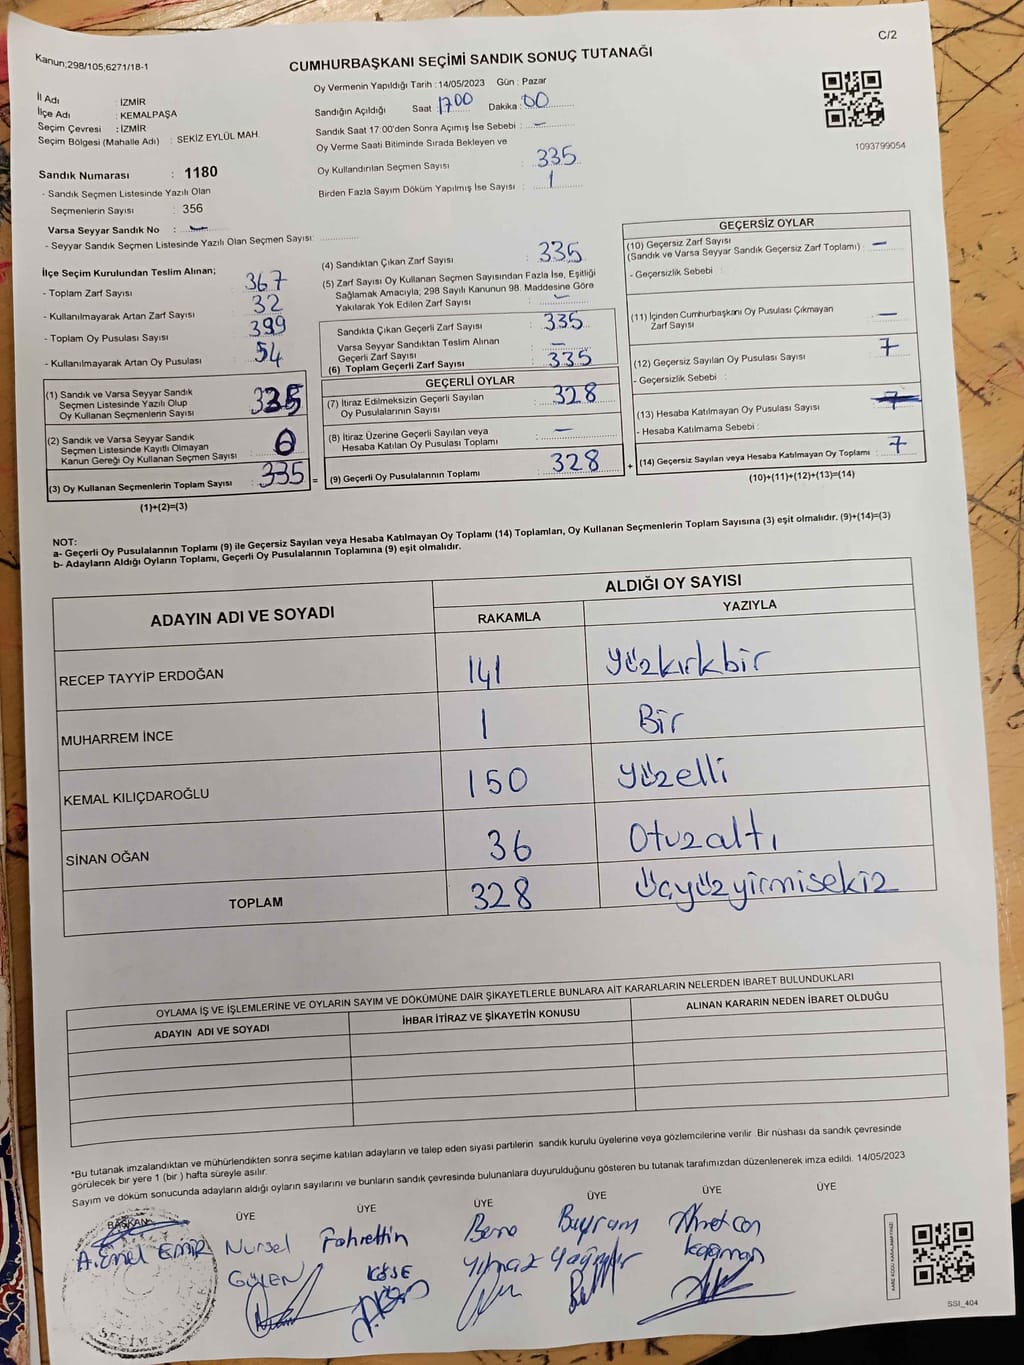 Kanun;298/105;6271/18-1
C/2
CUMHURBAŞKANI SEÇİMİ SANDIK SONUÇ TUTANAĞI
İl Adı : İZMİR
İlçe Adı : KEMALPAŞA
Seçim Çevresi : İZMİR
Seçim Bölgesi (Mahalle Adı) : SEKİZ EYLÜL MAH.
Sandık Numarası : 1180
- Sandık Seçmen Listesinde Yazılı Olan
Seçmenlerin Sayısı : 356
Varsa Seyyar Sandık No : -
- Seyyar Sandık Seçmen Listesinde Yazılı Olan Seçmen Sayısı:
Oy Vermenin Yapıldığı Tarih : 14/05/2023 Gün : Pazar
Sandığın Açıldığı Saat 1700 Dakika : 00
Sandık Saat 17:00'den Sonra Açımış İse Sebebi : -
Oy Verme Saati Bitiminde Sırada Bekleyen ve
Oy Kullandırılan Seçmen Sayısı : 335
Birden Fazla Sayım Döküm Yapılmış İse Sayısı : 1
1093799054
İlçe Seçim Kurulundan Teslim Alınan;
- Toplam Zarf Sayısı : 367
- Kullanılmayarak Artan Zarf Sayısı : 32
- Toplam Oy Pusulası Sayısı : 399
- Kullanılmayarak Artan Oy Pusulası : 54
(1) Sandık ve Varsa Seyyar Sandık
Seçmen Listesinde Yazılı Olup
Oy Kullanan Seçmenlerin Sayısı : 335
(2) Sandık ve Varsa Seyyar Sandık
Seçmen Listesinde Kayıtlı Olmayan
Kanun Gereği Oy Kullanan Seçmen Sayısı : 0
(3) Oy Kullanan Seçmenlerin Toplam Sayısı : 335 =
(1)+(2)=(3)
(4) Sandıktan Çıkan Zarf Sayısı : 335
(5) Zarf Sayısı Oy Kullanan Seçmen Sayısından Fazla İse, Eşitliği
Sağlamak Amacıyla, 298 Sayılı Kanunun 98. Maddesine Göre
Yakılarak Yok Edilen Zarf Sayısı : -
Sandıkta Çıkan Geçerli Zarf Sayısı : 335
Varsa Seyyar Sandıktan Teslim Alınan
Geçerli Zarf Sayısı : -
(6) Toplam Geçerli Zarf Sayısı : 335
GEÇERLİ OYLAR
(7) İtiraz Edilmeksizin Geçerli Sayılan
Oy Pusulalarının Sayısı : 328
(8) İtiraz Üzerine Geçerli Sayılan veya
Hesaba Katılan Oy Pusulası Toplamı : -
(9) Geçerli Oy Pusulalarının Toplamı : 328 +
GEÇERSİZ OYLAR
(10) Geçersiz Zarf Sayısı
(Sandık ve Varsa Seyyar Sandık Geçersiz Zarf Toplamı) : -
- Geçersizlik Sebebi :
(11) İçinden Cumhurbaşkanı Oy Pusulası Çıkmayan
Zarf Sayısı : -
(12) Geçersiz Sayılan Oy Pusulası Sayısı : 7
- Geçersizlik Sebebi :
(13) Hesaba Katılmayan Oy Pusulası Sayısı : 7
- Hesaba Katılmama Sebebi :
(14) Geçersiz Sayılan veya Hesaba Katılmayan Oy Toplamı : 7
(10)+(11)+(12)+(13)=(14)
NOT:
a- Geçerli Oy Pusulalarının Toplamı (9) ile Geçersiz Sayılan veya Hesaba Katılmayan Oy Toplamı (14) Toplamları, Oy Kullanan Seçmenlerin Toplam Sayısına (3) eşit olmalıdır. (9)+(14)=(3)
b- Adayların Aldığı Oyların Toplamı, Geçerli Oy Pusulalarının Toplamına (9) eşit olmalıdır.
ADAYIN ADI VE SOYADI
ALDIĞI OY SAYISI
RAKAMLA YAZIYLA
RECEP TAYYİP ERDOĞAN 141 Yüzkırkbir
MUHARREM İNCE 1 Bir
KEMAL KILIÇDAROĞLU 150 yüzelli
SİNAN OĞAN 36 Otuzaltı
TOPLAM 328 Üçyüzyirmisekiz
OYLAMA İŞ VE İŞLEMLERİNE VE OYLARIN SAYIM VE DÖKÜMÜNE DAİR ŞİKAYETLERLE BUNLARA AİT KARARLARIN NELERDEN İBARET BULUNDUKLARI
ADAYIN ADI VE SOYADI
İHBAR İTİRAZ VE ŞİKAYETİN KONUSU
ALINAN KARARIN NEDEN İBARET OLDUĞU
*Bu tutanak imzalandıktan ve mühürlendikten sonra seçime katılan adayların ve talep eden siyasi partilerin sandık kurulu üyelerine veya gözlemcilerine verilir. Bir nüshası da sandık çevresinde
görülecek bir yere 1 (bir ) hafta süreyle asılır.
Sayım ve döküm sonucunda adayların aldığı oyların sayılarını ve bunların sandık çevresinde bulunanlara duyurulduğunu gösteren bu tutanak tarafımızdan düzenlenerek imza edildi. 14/05/2023
BAŞKAN ÜYE ÜYE ÜYE ÜYE ÜYE ÜYE
EMİR Nursel Fahrettin Bayram Ahmet can
GÜLEN KÖSE Yılmaz
SSI_404